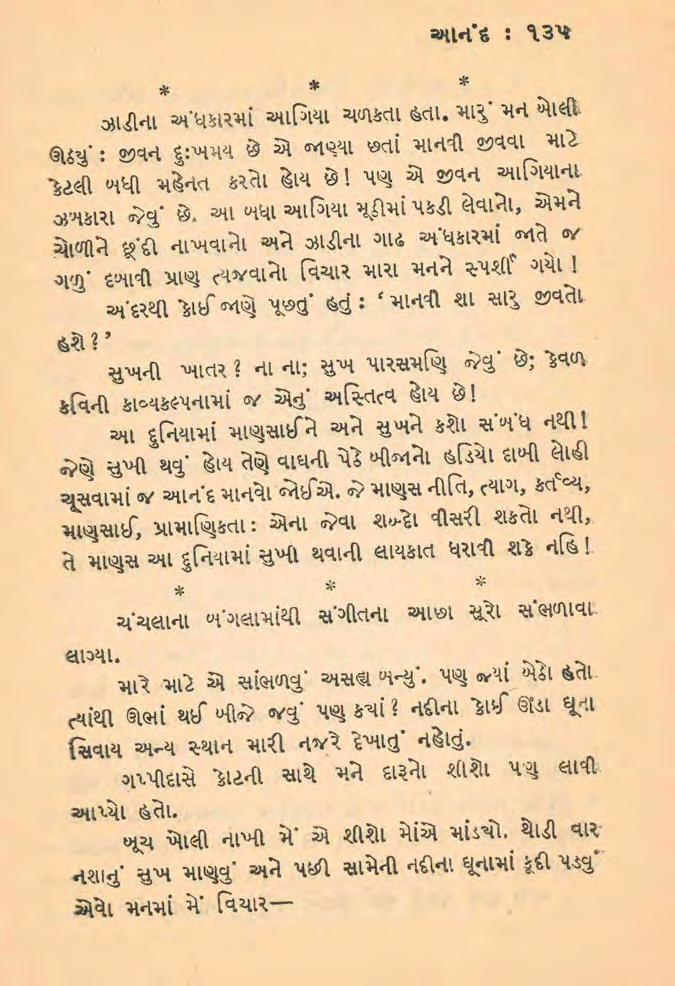 આનંદ : ૧૩૫
* * *
ઝાડીના અંધકારમાં આગિયા ચળકતા હતા. મારું મન બોલી
ઊઠ્યું : જીવન દુઃખમય છે એ જાણ્યા છતાં માનવી જીવવા માટે
કેટલી બધી મહેનત કરતો હોય છે! પણ એ જીવન આગિયાના
ઝબકારા જેવું છે. આ બધા આગિયા મૂઠીમાં પકડી લેવાનો, એમને
ચોળીને છૂંદી નાખવાનો અને ઝાડીના ગાઢ અંધકારમાં જાતે જ
ગળું દબાવી પ્રાણ ત્યજવાનો વિચાર મારા મનને સ્પર્શી ગયો !
અંદરથી કોઈ જાણે પૂછતું હતું : ‘માનવી શા સારુ જીવતો
હશે?’
સુખની ખાતર? ના ના; સુખ પારસમણિ જેવું છે; કેવળ
કવિની કાવ્યકલ્પનામાં જ એનું અસ્તિત્વ હોય છે!
આ દુનિયામાં માણસાઈને અને સુખને કશો સંબંધ નથી!
જેણે સુખી થવું હોય તેણે વાઘની પેઠે બીજાનો હડિયો દાબી લોહી
ચૂસવામાં જ આનંદ માનવો જોઈએ. જે માણસ નીતિ, ત્યાગ, કર્તવ્ય,
માણસાઈ, પ્રામાણિકતા: એના જેવા શબ્દો વીસરી શકતો નથી,
તે માણસ આ દુનિયામાં સુખી થવાની લાયકાત ધરાવી શકે નહિ!
* * *
ચંચલાના બંગલામાંથી સંગીતના આછા સૂરો સંભળાવા
લાગ્યા.
મારે માટે એ સાંભળવું અસહ્ય બન્યું. પણ જ્યાં બેઠો હતો
ત્યાંથી ઊભાં થઈ બીજે જવું પણ ક્યાં? નદીના કોઈ ઊંડા ઘૂના
સિવાય અન્ય સ્થાન મારી નજરે દેખાતું નહોતું.
ગપ્પીદાસે કોટની સાથે મને દારૂનો શીશો પણ લાવી
આપ્યો હતો.
બૂચ ખોલી નાખી મેં એ શીશો મોંએ માંડ્યો. થોડી વાર
નશાનું સુખ માણવું અને પછી સામેની નદીના ઘૂનામાં કૂદી પડવું
એવો મનમાં મેં વિચાર—